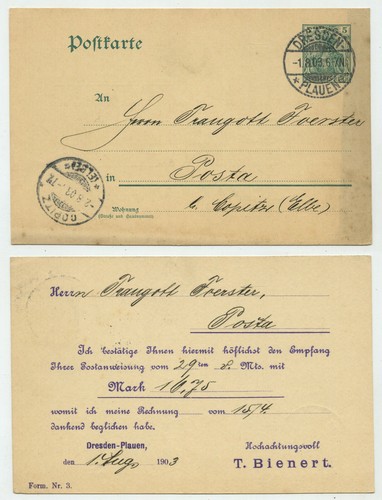 Postkarte
5
DRESDEN-
-1.8.03.6-7N.
* PLAUEN
An
Herrn Traugott Foerster
in Posta
b. Copitz (Elbe)
Wohnung
(Straße und Hausnummer)
COPITZ
Herrn Traugott Foerster,
Posta
Ich bestätige Ihnen hiermit höflichst den Empfang
Ihrer Postanweisung vom 29ten d. Mts. mit
Mark 16,75
womit ich meine Rechnung vom 15/4
dankend beglichen habe.
Dresden-Plauen,
den 1. Aug. 1903
Hochachtungsvoll
T. Bienert.
Form. Nr. 3.